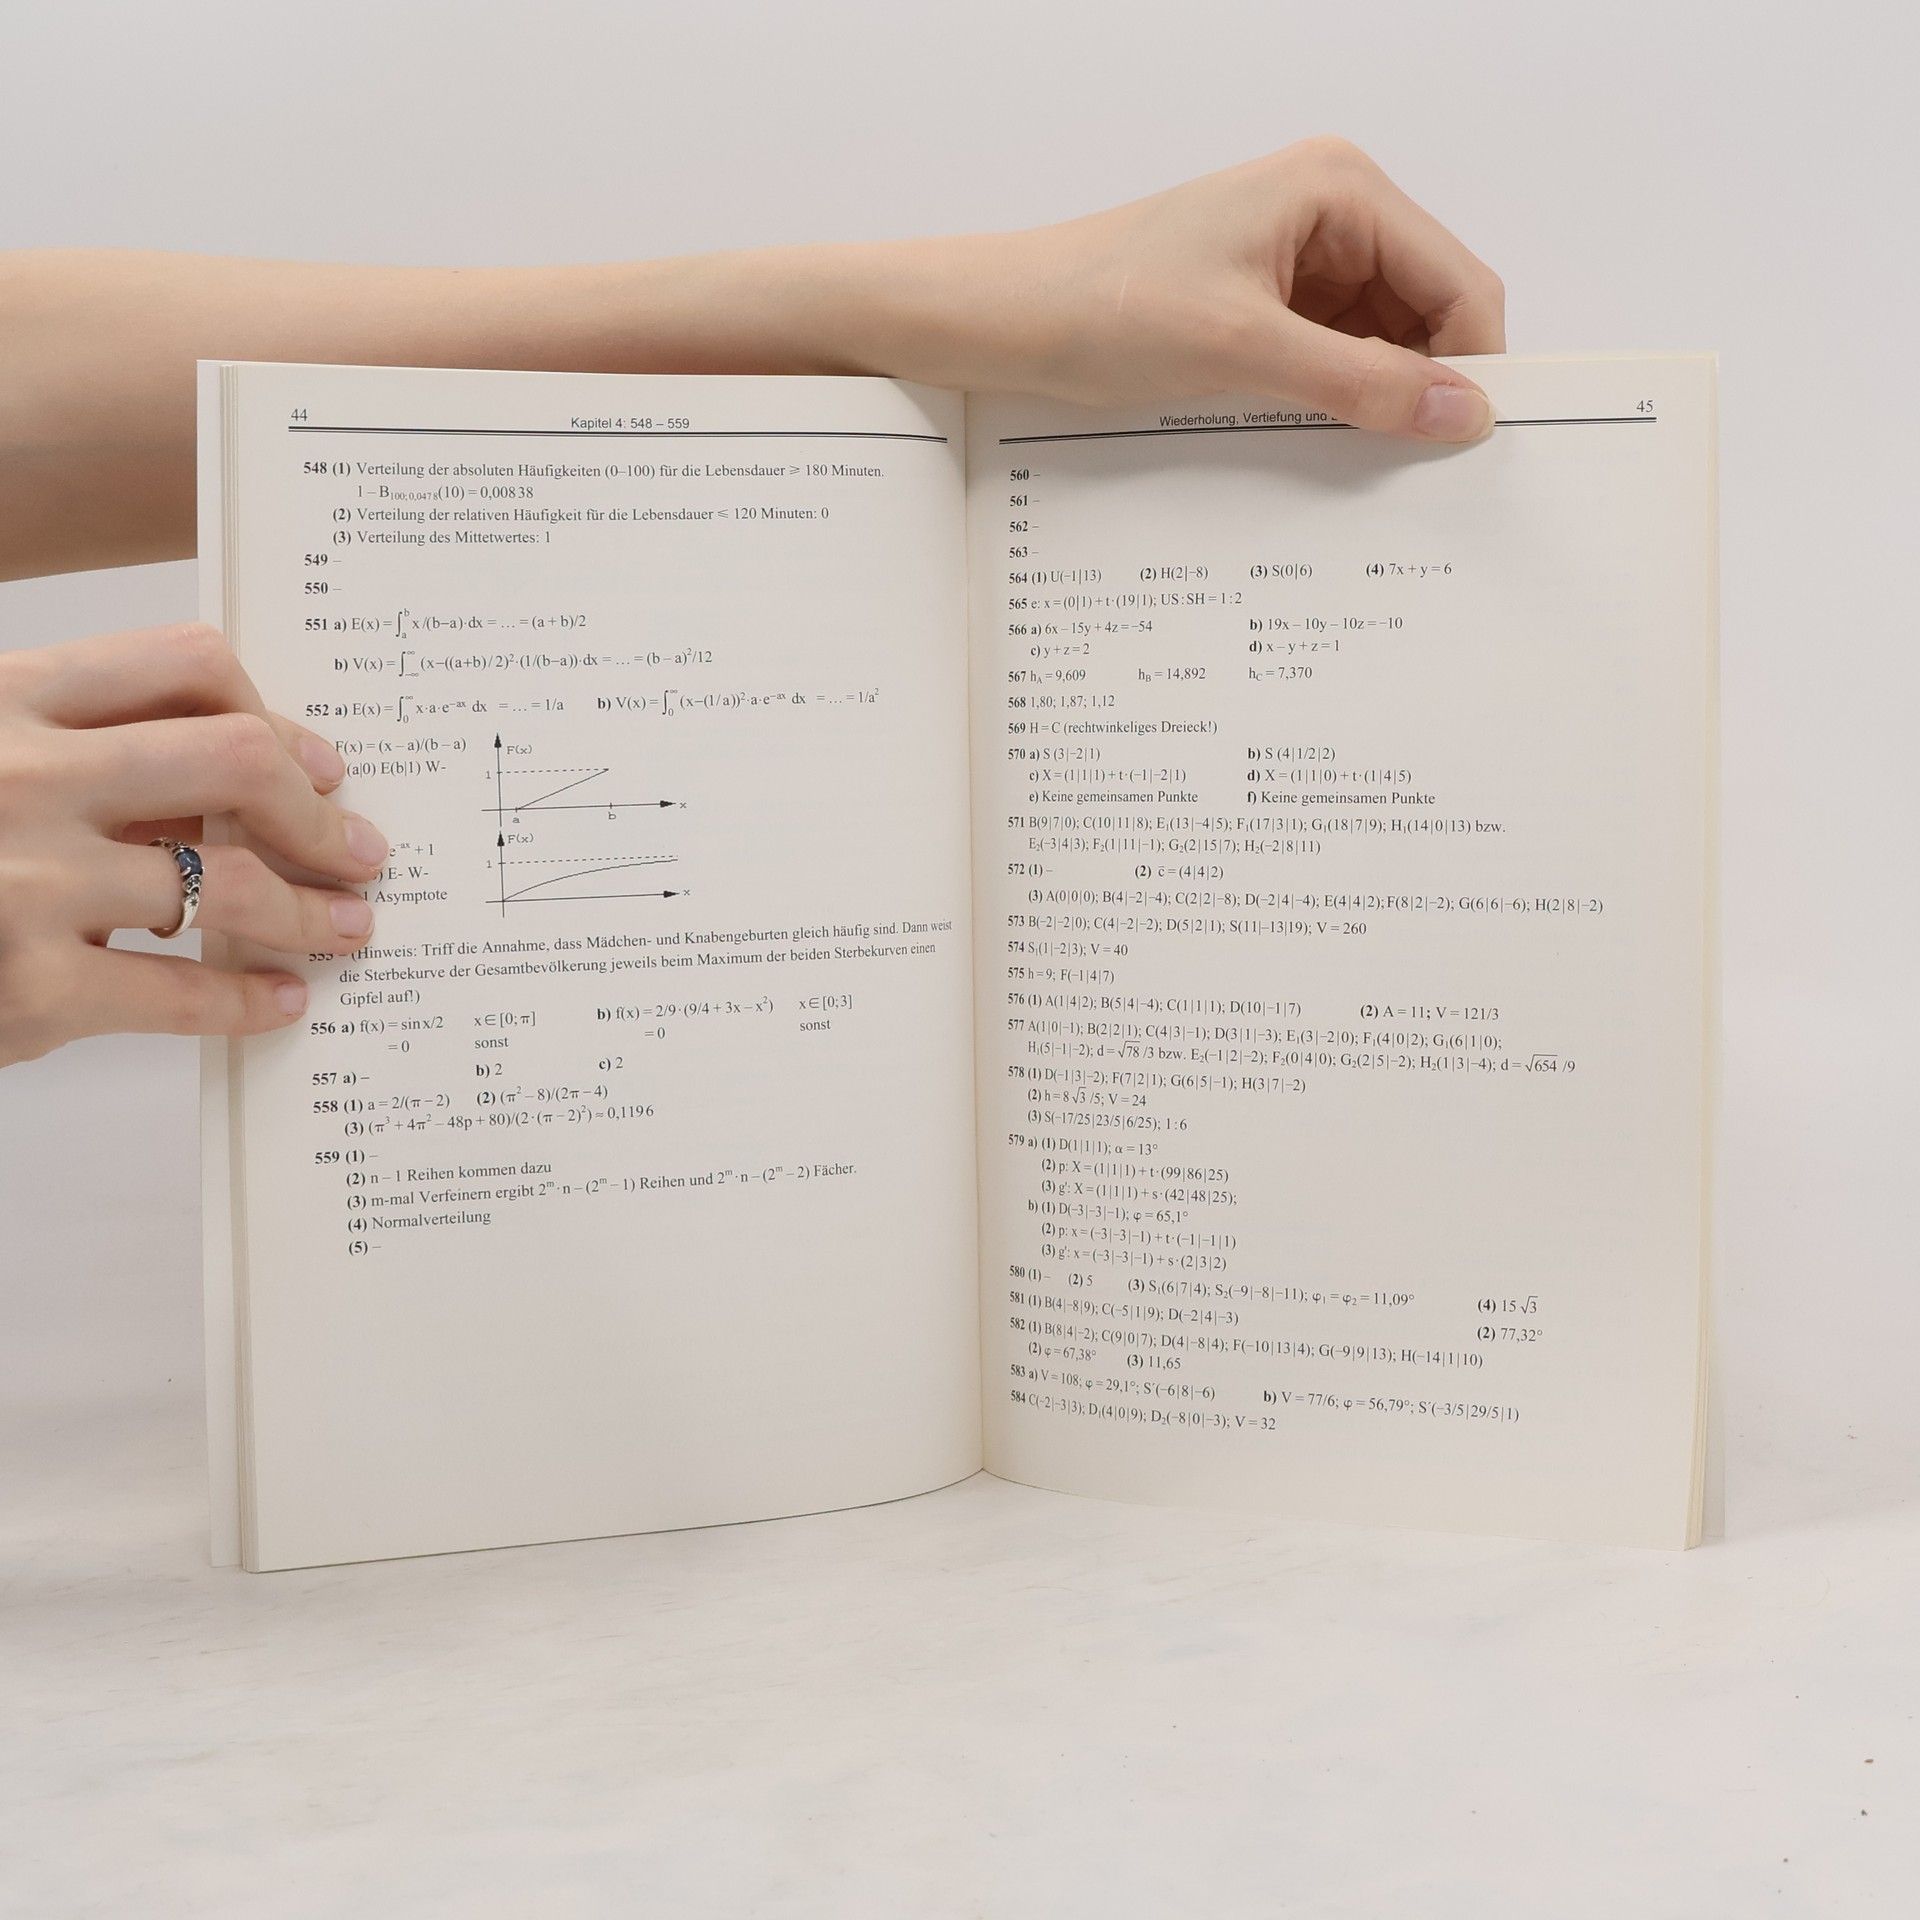 44
Kapitel 4: 548 – 559
548 (1) Verteilung der absoluten Häufigkeiten (0–100) für die Lebensdauer ⩾ 180 Minuten.
1 – B₁₀₀;₀,₀₄₇₈(10) = 0,00838
(2) Verteilung der relativen Häufigkeit für die Lebensdauer ⩽ 120 Minuten: 0
(3) Verteilung des Mittetwertes: 1
549 –
550 –
551 a) E(x) = ∫ₐᵇ x/(b–a)·dx = … = (a + b)/2
b) V(x) = ∫₋∞^∞ (x–((a+b)/2)²·(1/(b–a))·dx = … = (b – a)²/12
552 a) E(x) = ∫₀^∞ x·a·e⁻ᵃˣ dx = … = 1/a b) V(x) = ∫₀^∞ (x–(1/a))²·a·e⁻ᵃˣ dx = … = 1/a²
F(x) = (x – a)/(b – a)
(a|0) E(b|1) W-
F(x)
1
a b x
e⁻ᵃˣ + 1
) E- W-
1 Asymptote
F(x)
1
x
555 – (Hinweis: Triff die Annahme, dass Mädchen- und Knabengeburten gleich häufig sind. Dann weist
die Sterbekurve der Gesamtbevölkerung jeweils beim Maximum der beiden Sterbekurven einen
Gipfel auf!)
556 a) f(x) = sinx/2 x∈[0; π] b) f(x) = 2/9·(9/4 + 3x – x²) x∈[0;3]
= 0 sonst = 0 sonst
557 a) – b) 2 c) 2
558 (1) a = 2/(π – 2) (2) (π² – 8)/(2π – 4)
(3) (π³ + 4π² – 48p + 80)/(2·(π – 2)²) ≈ 0,1196
559 (1) –
(2) n – 1 Reihen kommen dazu
(3) m-mal Verfeinern ergibt 2ᵐ·n – (2ᵐ – 1) Reihen und 2ᵐ·n – (2ᵐ – 2) Fächer.
(4) Normalverteilung
(5) –
Wiederholung, Vertiefung und
45
560 –
561 –
562 –
563 –
564 (1) U(–1|13) (2) H(2|–8) (3) S(0|6) (4) 7x + y = 6
565 e: x = (0|1) + t·(19|1); US : SH = 1 : 2
566 a) 6x – 15y + 4z = –54 b) 19x – 10y – 10z = –10
c) y + z = 2 d) x – y + z = 1
567 h_A = 9,609 h_B = 14,892 h_C = 7,370
568 1,80; 1,87; 1,12
569 H = C (rechtwinkeliges Dreieck!)
570 a) S (3|–2|1) b) S (4|1/2|2)
c) X = (1|1|1) + t·(–1|–2|1) d) X = (1|1|0) + t·(1|4|5)
e) Keine gemeinsamen Punkte f) Keine gemeinsamen Punkte
571 B(9|7|0); C(10|11|8); E₁(13|–4|5); F₁(17|3|1); G₁(18|7|9); H₁(14|0|13) bzw.
E₂(–3|4|3); F₂(1|11|–1); G₂(2|15|7); H₂(–2|8|11)
572 (1) – (2) c⃗ = (4|4|2)
(3) A(0|0|0); B(4|–2|–4); C(2|2|–8); D(–2|4|–4); E(4|4|2); F(8|2|–2); G(6|6|–6); H(2|8|–2)
573 B(–2|–2|0); C(4|–2|–2); D(5|2|1); S(11|–13|19); V = 260
574 S₁(1|–2|3); V = 40
575 h = 9; F(–1|4|7)
576 (1) A(1|4|2); B(5|4|–4); C(1|1|1); D(10|–1|7) (2) A = 11; V = 121/3
577 A(1|0|–1); B(2|2|1); C(4|3|–1); D(3|1|–3); E₁(3|–2|0); F₁(4|0|2); G₁(6|1|0);
H₁(5|–1|–2); d = √78 /3 bzw. E₂(–1|2|–2); F₂(0|4|0); G₂(2|5|–2); H₂(1|3|–4); d = √654 /9
578 (1) D(–1|3|–2); F(7|2|1); G(6|5|–1); H(3|7|–2)
(2) h = 8√3 /5; V = 24
(3) S(–17/25|23/5|6/25); 1 : 6
579 a) (1) D(1|1|1); α = 13°
(2) p: X = (1|1|1) + t·(99|86|25)
(3) g': X = (1|1|1) + s·(42|48|25);
b) (1) D(–3|–3|–1); φ = 65,1°
(2) p: x = (–3|–3|–1) + t·(–1|–1|1)
(3) g': x = (–3|–3|–1) + s·(2|3|2)
580 (1) – (2) 5 (3) S₁(6|7|4); S₂(–9|–8|–11); φ₁ = φ₂ = 11,09° (4) 15√3
581 (1) B(4|–8|9); C(–5|1|9); D(–2|4|–3) (2) 77,32°
582 (1) B(8|4|–2); C(9|0|7); D(4|–8|4); F(–10|13|4); G(–9|9|13); H(–14|1|10)
(2) φ = 67,38° (3) 11,65
583 a) V = 108; φ = 29,1°; S´(–6|8|–6) b) V = 77/6; φ = 56,79°; S´(–3/5|29/5|1)
584 C(–2|–3|3); D₁(4|0|9); D₂(–8|0|–3); V = 32